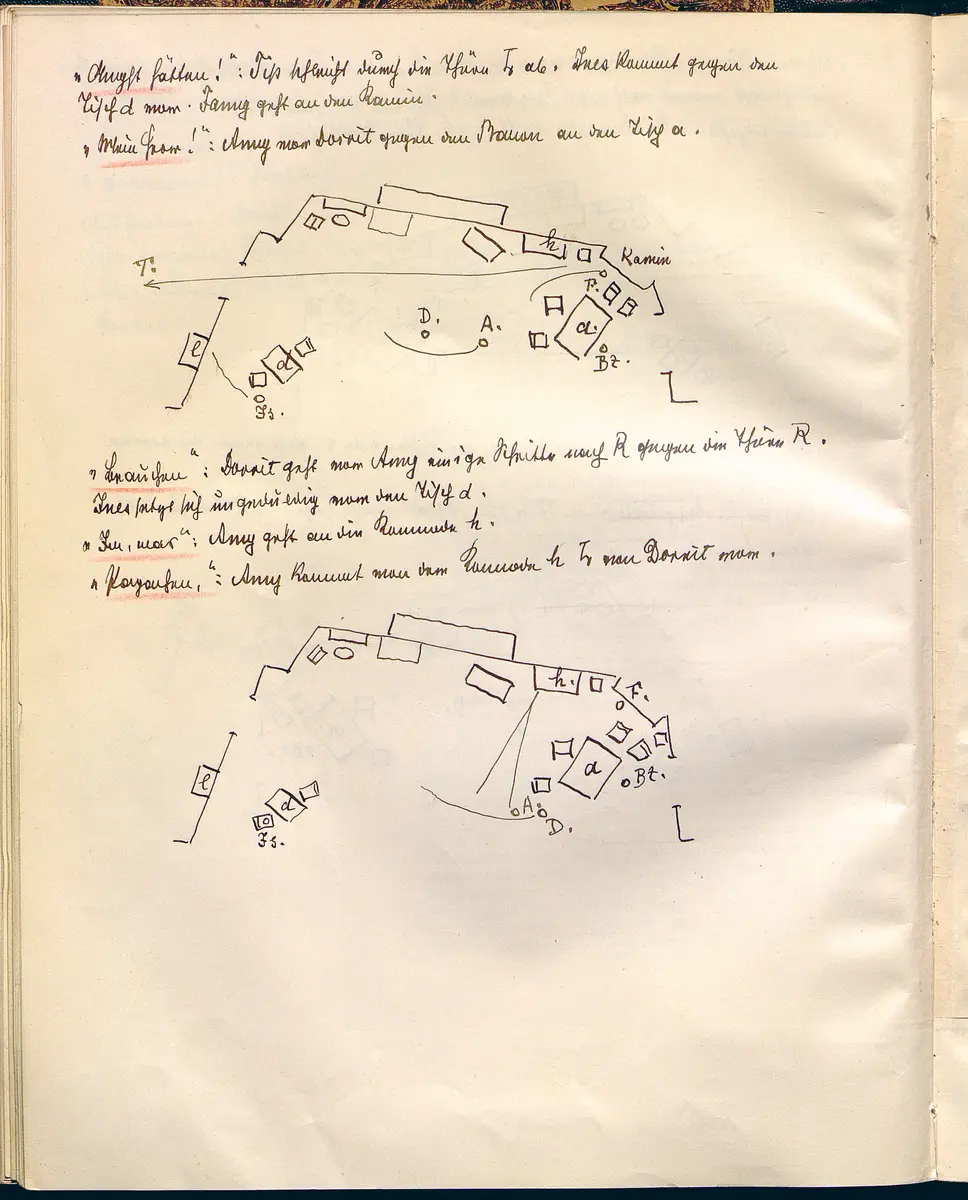 „Angst hätten!“: Tip schleicht durch die Thüre L ab. Ines kommt gegen den
Tisch d vor. Fanny geht an den Kamin.
„Mein Herr!“: Amy vor Dorrit gegen den Baron an den Tisch a.
h
Kamin
T.
F.
D.
A.
a.
l
d
Bz.
Is.
„brauchen“: Dorrit geht vor Amy einige Schritte nach R gegen die Thüre R.
Ines setzt sich ungeduldig vor den Tisch d.
Amy geht an die Kommode h.
Amy kommt von der Kommode h L von Dorrit vor.
h.
F.
a
Bz.
l
d
A.
D.
Is.